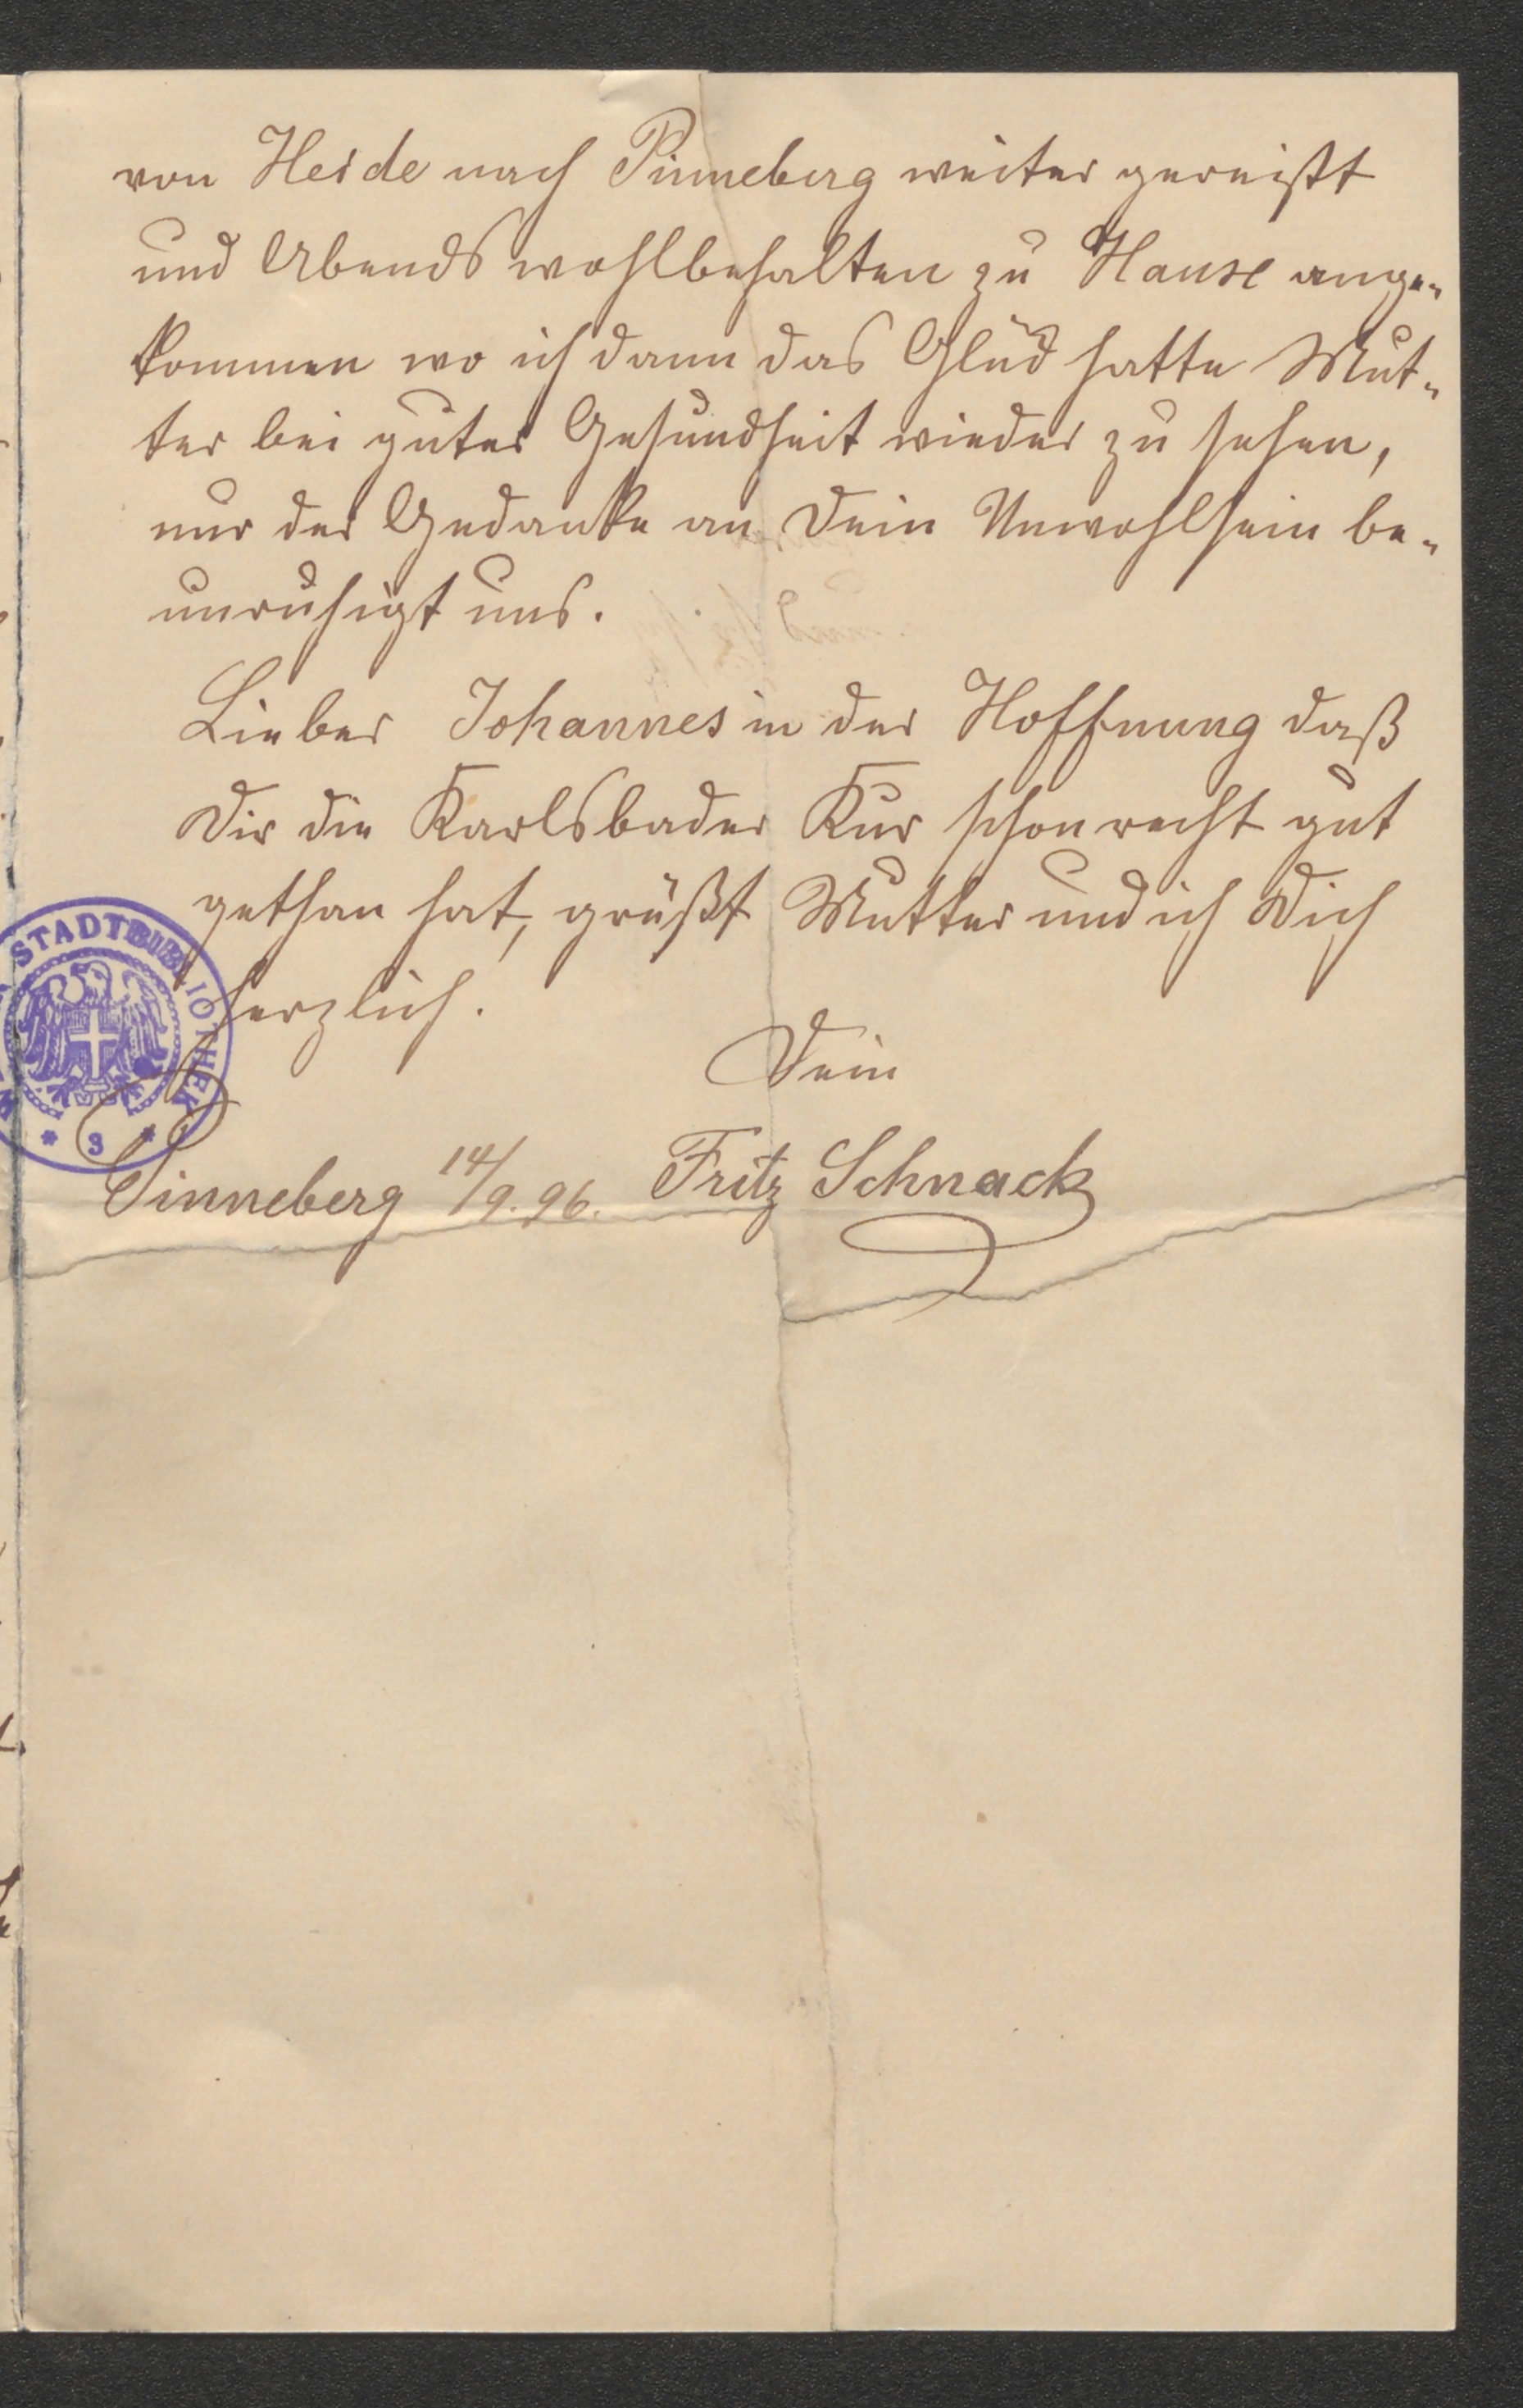 von Heide nach Pinneberg weiter gereißt
und Abends wohlbehalten zu Hause ange-
kommen wo ich dann das Glück hatte Mut-
ter bei guter Gesundheit wieder zu sehen,
nur der Gedanke an Dein Unwohlsein be-
unruhigt uns.
Lieber Johannes in der Hoffnung daß
Dir die Karlsbader Kur schon recht gut
gethan hat, grüßt Mutter und ich Dich
herzlich.
Dein
Pinneberg 14/9.96. Fritz Schnack
STADTBIBLIOTHEK
* 3 *